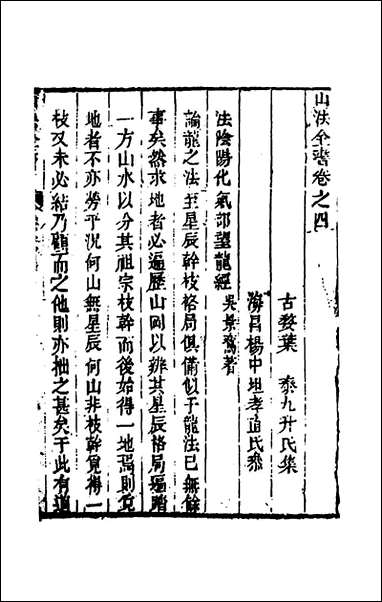 山法全書卷之四
古婺葉　泰九升氏集
海昌楊中坦孝道氏參
法陰陽化氣部望龍經
吳景鸞著
論龍之法至星辰幹枝格局俱備似于龍法已無餘
事矣然求地者必遍歷山岡以辨其星辰格局遍踏
一方山水以分其祖宗枝幹而後始得一地焉則覓
地者不亦勞乎況何山無星辰何山非枝幹覓得一
枝又未必結乃顧而之他則亦拙之甚矣于此有道